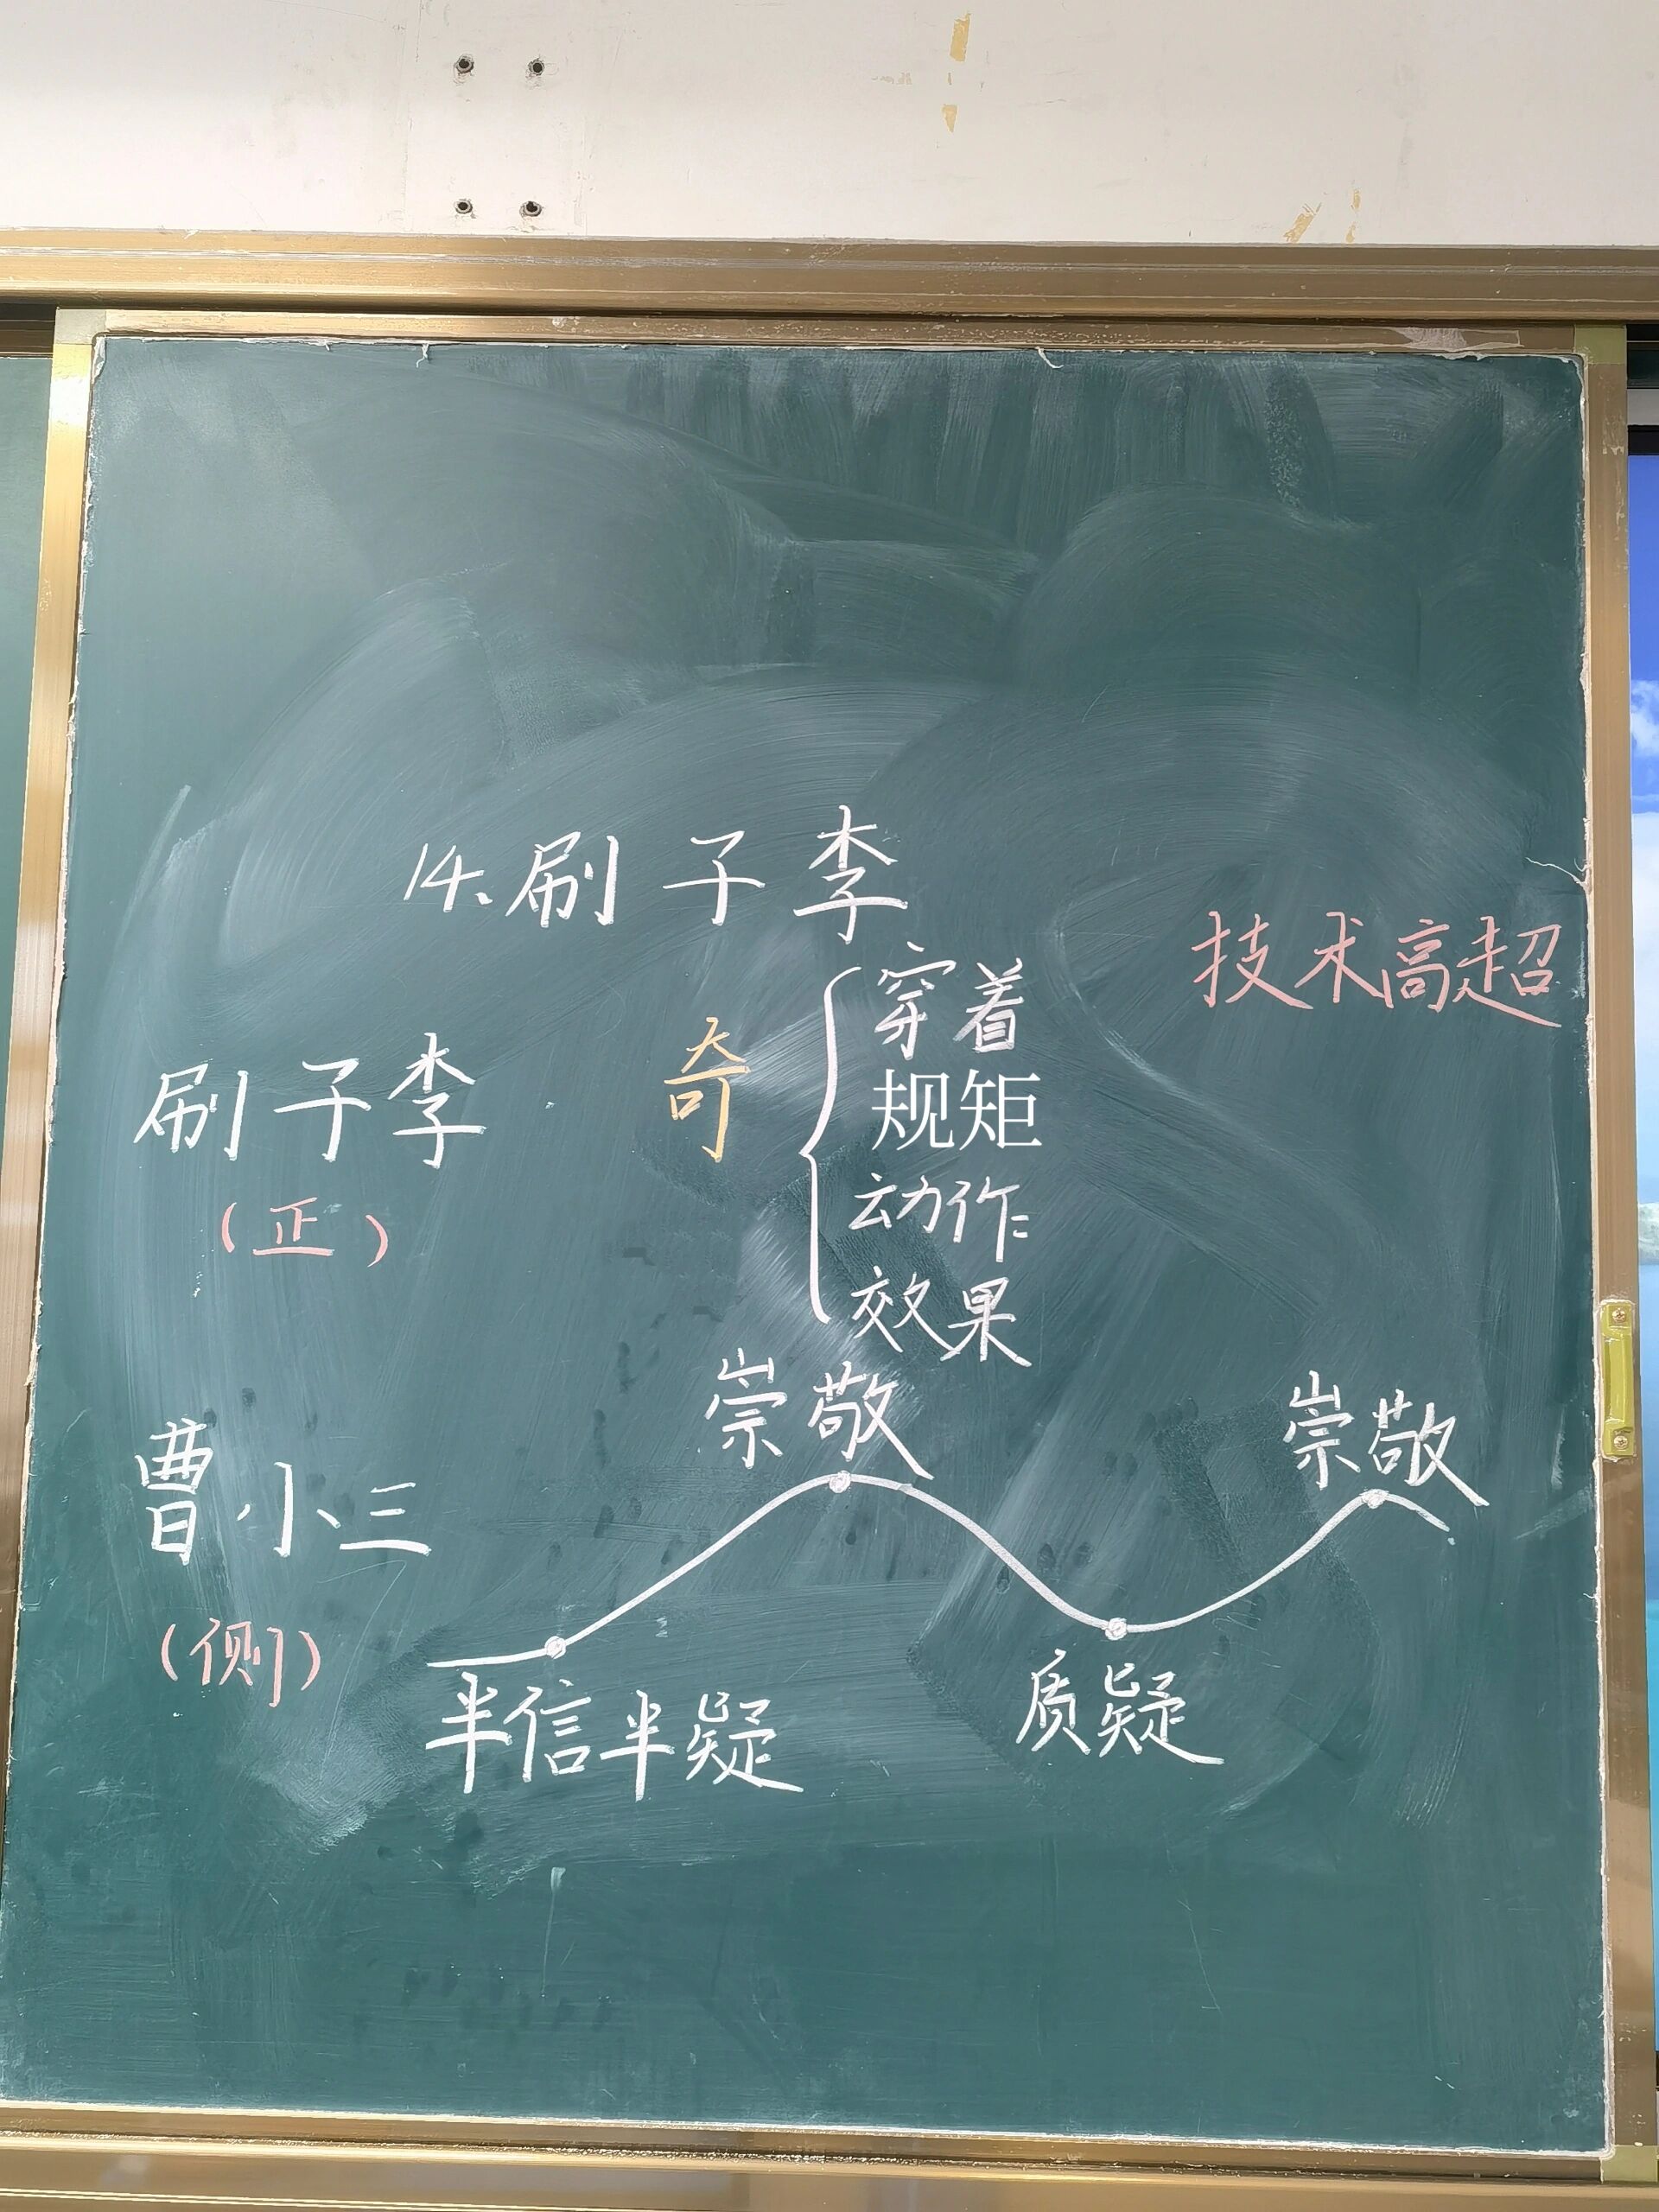 14、刷子李
技术高超
刷子李
(正)
奇
穿着
规矩
动作
效果
曹小三
(侧)
半信半疑
崇敬
质疑
崇敬